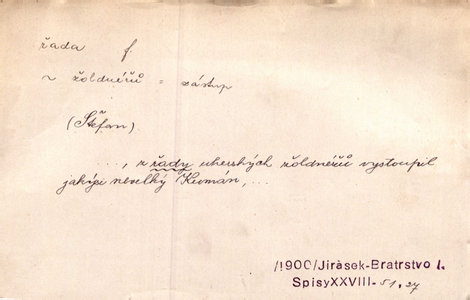 řada f.
~ žoldnéřů = zástup
(Štefan)
..., z řady uherských žoldnéřů vystoupil
jakýsi nevelký Kumán, ...
/1900/Jirásek-Bratrstvo I.
SpisyXXVIII-51,27